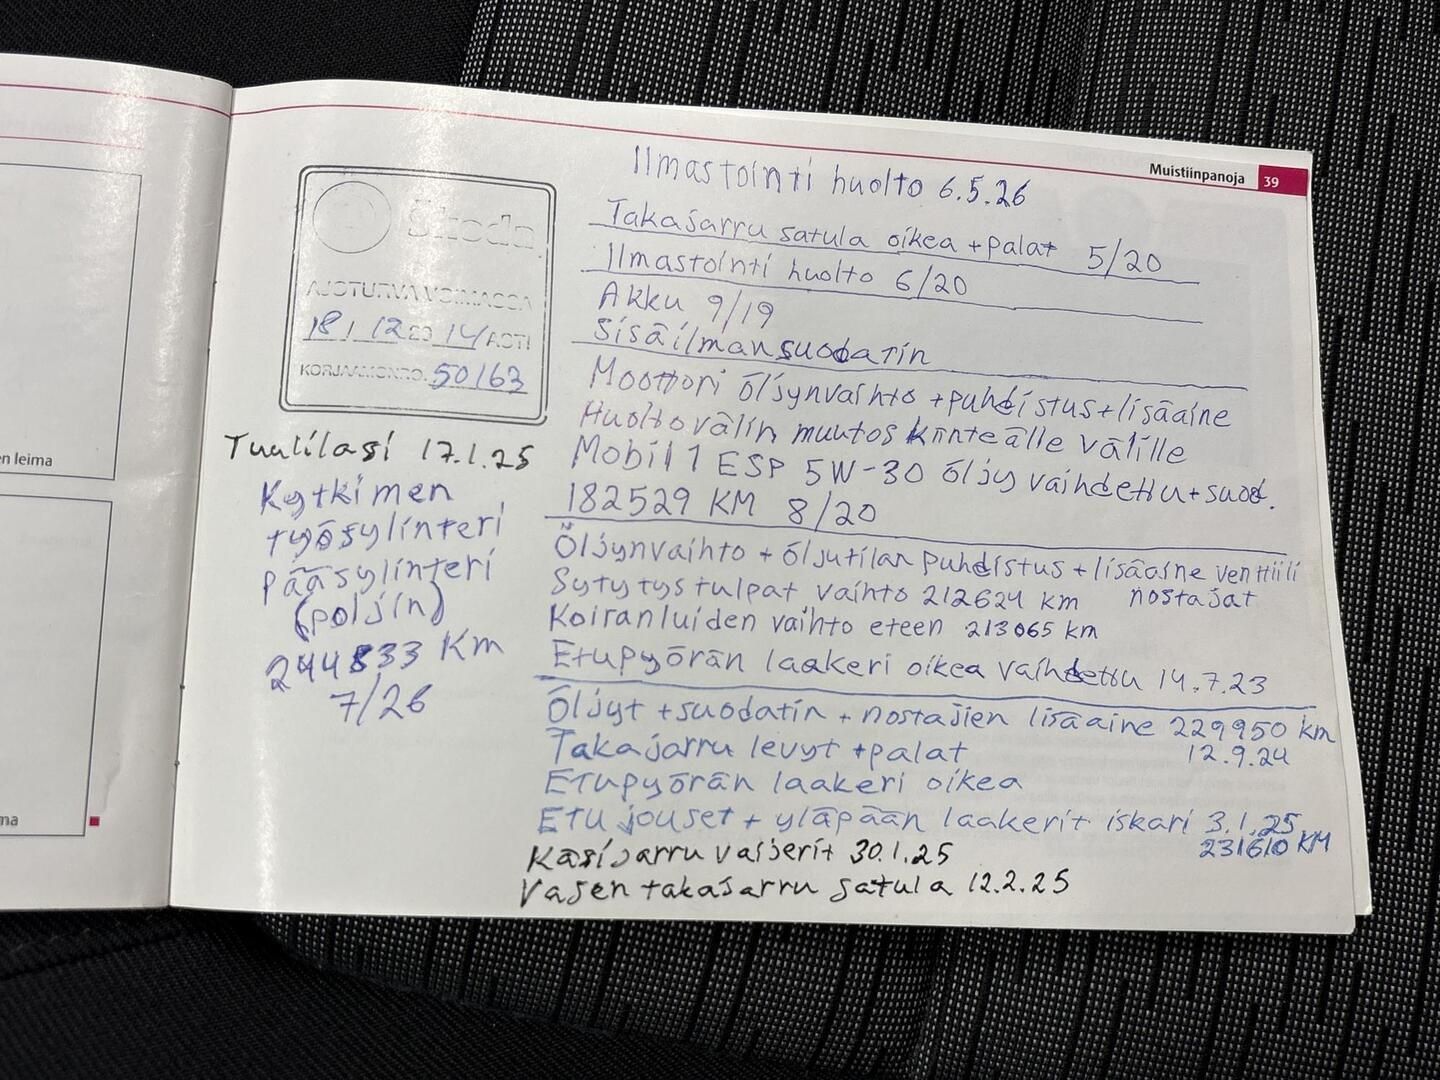 Muistiinpanoja 39
Skoda
AJOTURVA VOIMASSA
18 / 12 20 14 ASTI
KORJAAMON TO. 50163
Tuulilasi 17.1.25
Kytkimen
työsylinteri
pääsylinteri
(poljin)
244833 Km
7/26
Ilmastointi huolto 6.5.26
Takajarru satula oikea + palat 5/20
Ilmastointi huolto 6/20
Akku 9/19
Sisäilmansuodatin
Moottori öljynvaihto + puhdistus + lisäaine
Huoltovälin muutos kiinteälle välille
Mobil 1 ESP 5W-30 öljy vaihdettu + suod.
182529 KM 8/20
Öljynvaihto + öljytilan puhdistus + lisäaine venttiili
nostajat
Sytytystulpat vaihto 212624 km
Koiranluiden vaihto eteen 213065 km
Etupyörän laakeri oikea vaihdettu 14.7.23
Öljyt + suodatin + nostajien lisäaine 229950 km
12.9.24
Takajarru levyt + palat
Etupyörän laakeri oikea
Etu jouset + yläpään laakerit iskari 3.1.25
231610 KM
Käsijarru vaijerit 30.1.25
Vasen takajarru satula 12.2.25
en leima
ma